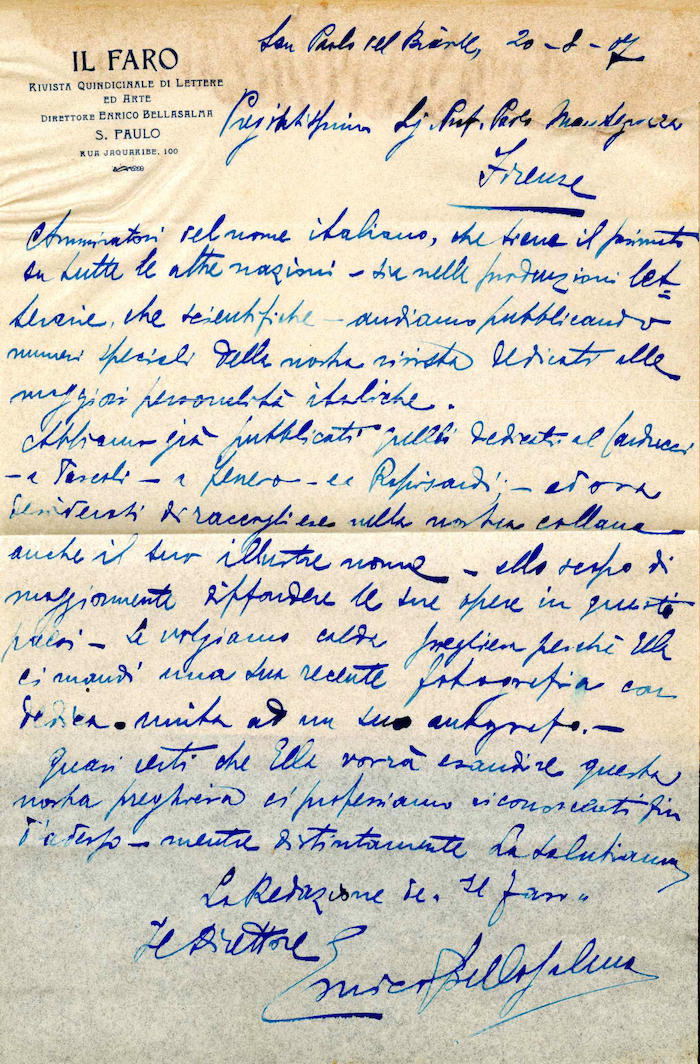 IL FARO
RIVISTA QUINDICINALE DI LETTERE
ED ARTE
DIRETTORE ENRICO BELLASALMA
S. PAULO
RUA JAGUARIBE, 100
San Paolo del Brasile, 20-8-07
Pregiatissimo Sig. Prof. Paolo Mantegazza
Firenze
Ammiratori del nome italiano, che tiene il primato
su tutte le altre nazioni - sia nelle produzioni let=
terarie, che scientifiche - andiamo pubblicando
numeri speciali della nostra rivista dedicati alle
maggiori personalità italiche.
Abbiamo già pubblicati quelli dedicati al Carducci
- a Pascoli - a - ea Rapisardi; - ed ora
desiderosi di raccogliere nella nostra collana
anche il suo illustre nome - allo scopo di
maggiormente diffondere le sue opere in questi
paesi - Le volgiamo calda preghiera perchè Ella
ci mandi una sua recente fotografia con
dedica - unita ad un suo autografo. -
Quasi certi che Ella vorrà esaudire questa
nostra preghiera ci professiamo riconoscenti fin
d'adesso - mentre distintamente La salutiamo
La Redazione de "Il Faro"
Il Direttore
Enrico Bellasalma